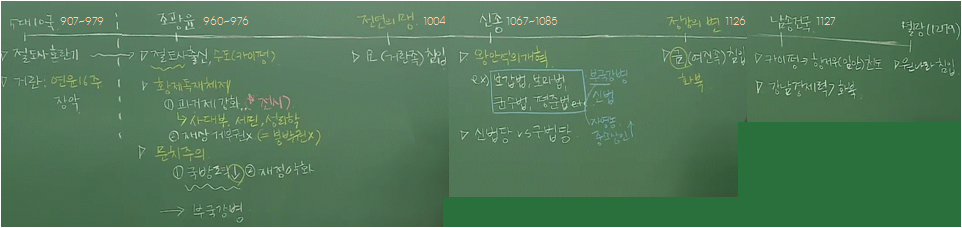 5대10국 907~979
▷ 절도사 혼란기
▷ 거란: 연운16주
장악
조광윤 960~976
▷ 절도사 출신, 수도(카이펑)
▷ 황제독재체제
① 과거제 강화, 전시
↳ 사대부, 서민, 성리학
② 재상 제무권X (= 봉박권X)
▷ 문치주의
① 국방력↓ ② 재정악화
→ 부국강병
전연의 맹 1004
▷ 요(거란족)침입
신종 1067~1085
▷ 왕안석의 개혁
ex) 보갑법, 보마법,
균수법, 평준법 etc
부국강병
신법
자영농
중소상인 ↑
▷ 신법당 vs 구법당
정강의 변 1126
▷ 금(여진족)침입
화북
남송건국 1127
▷ 카이펑→항저우(임안)천도
▷ 강남경제력 > 화북
멸망(1279)
▷ 원나라 침입